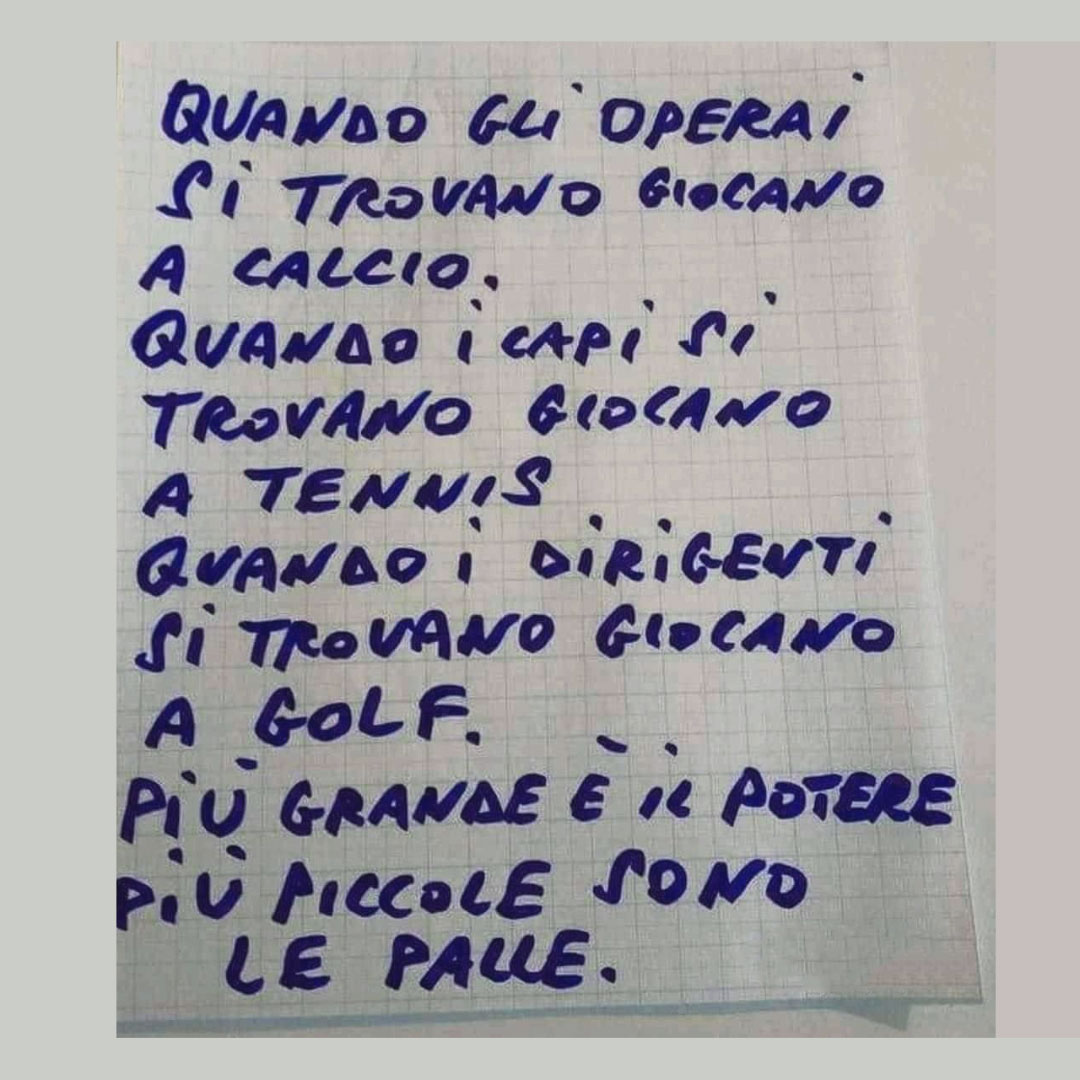 QUANDO GLI OPERAI
SI TROVANO GIOCANO
A CALCIO.
QUANDO I CAPI SI
TROVANO GIOCANO
A TENNIS
QUANDO I DIRIGENTI
SI TROVANO GIOCANO
A GOLF.
PIÙ GRANDE È IL POTERE
PIÙ PICCOLE SONO
LE PALLE.